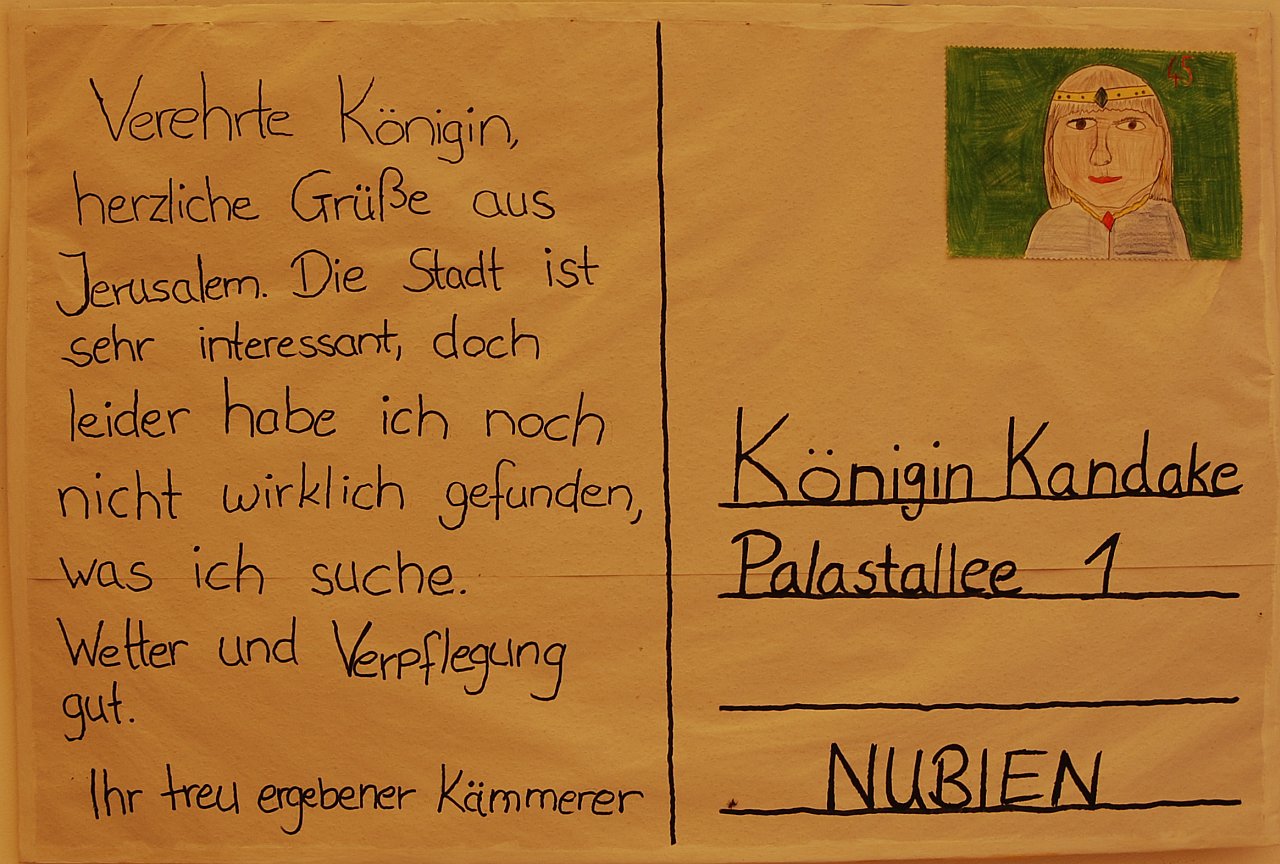 Verehrte Königin,
herzliche Grüße aus
Jerusalem. Die Stadt ist
sehr interessant, doch
leider habe ich noch
nicht wirklich gefunden,
was ich suche.
Wetter und Verpflegung
gut.
Ihr treu ergebener Kämmerer
45
Königin Kandake
Palastallee 1
NUBIEN